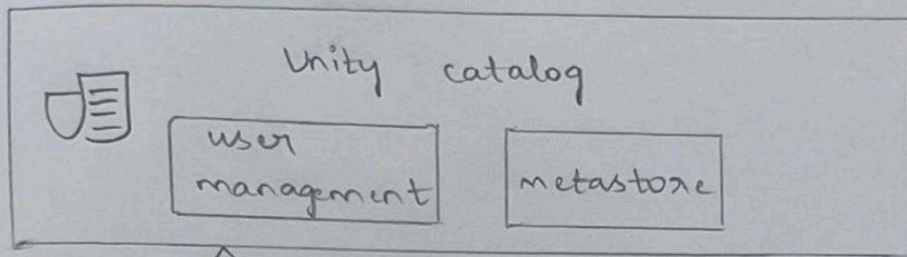 Unity catalog
user
management
metastore